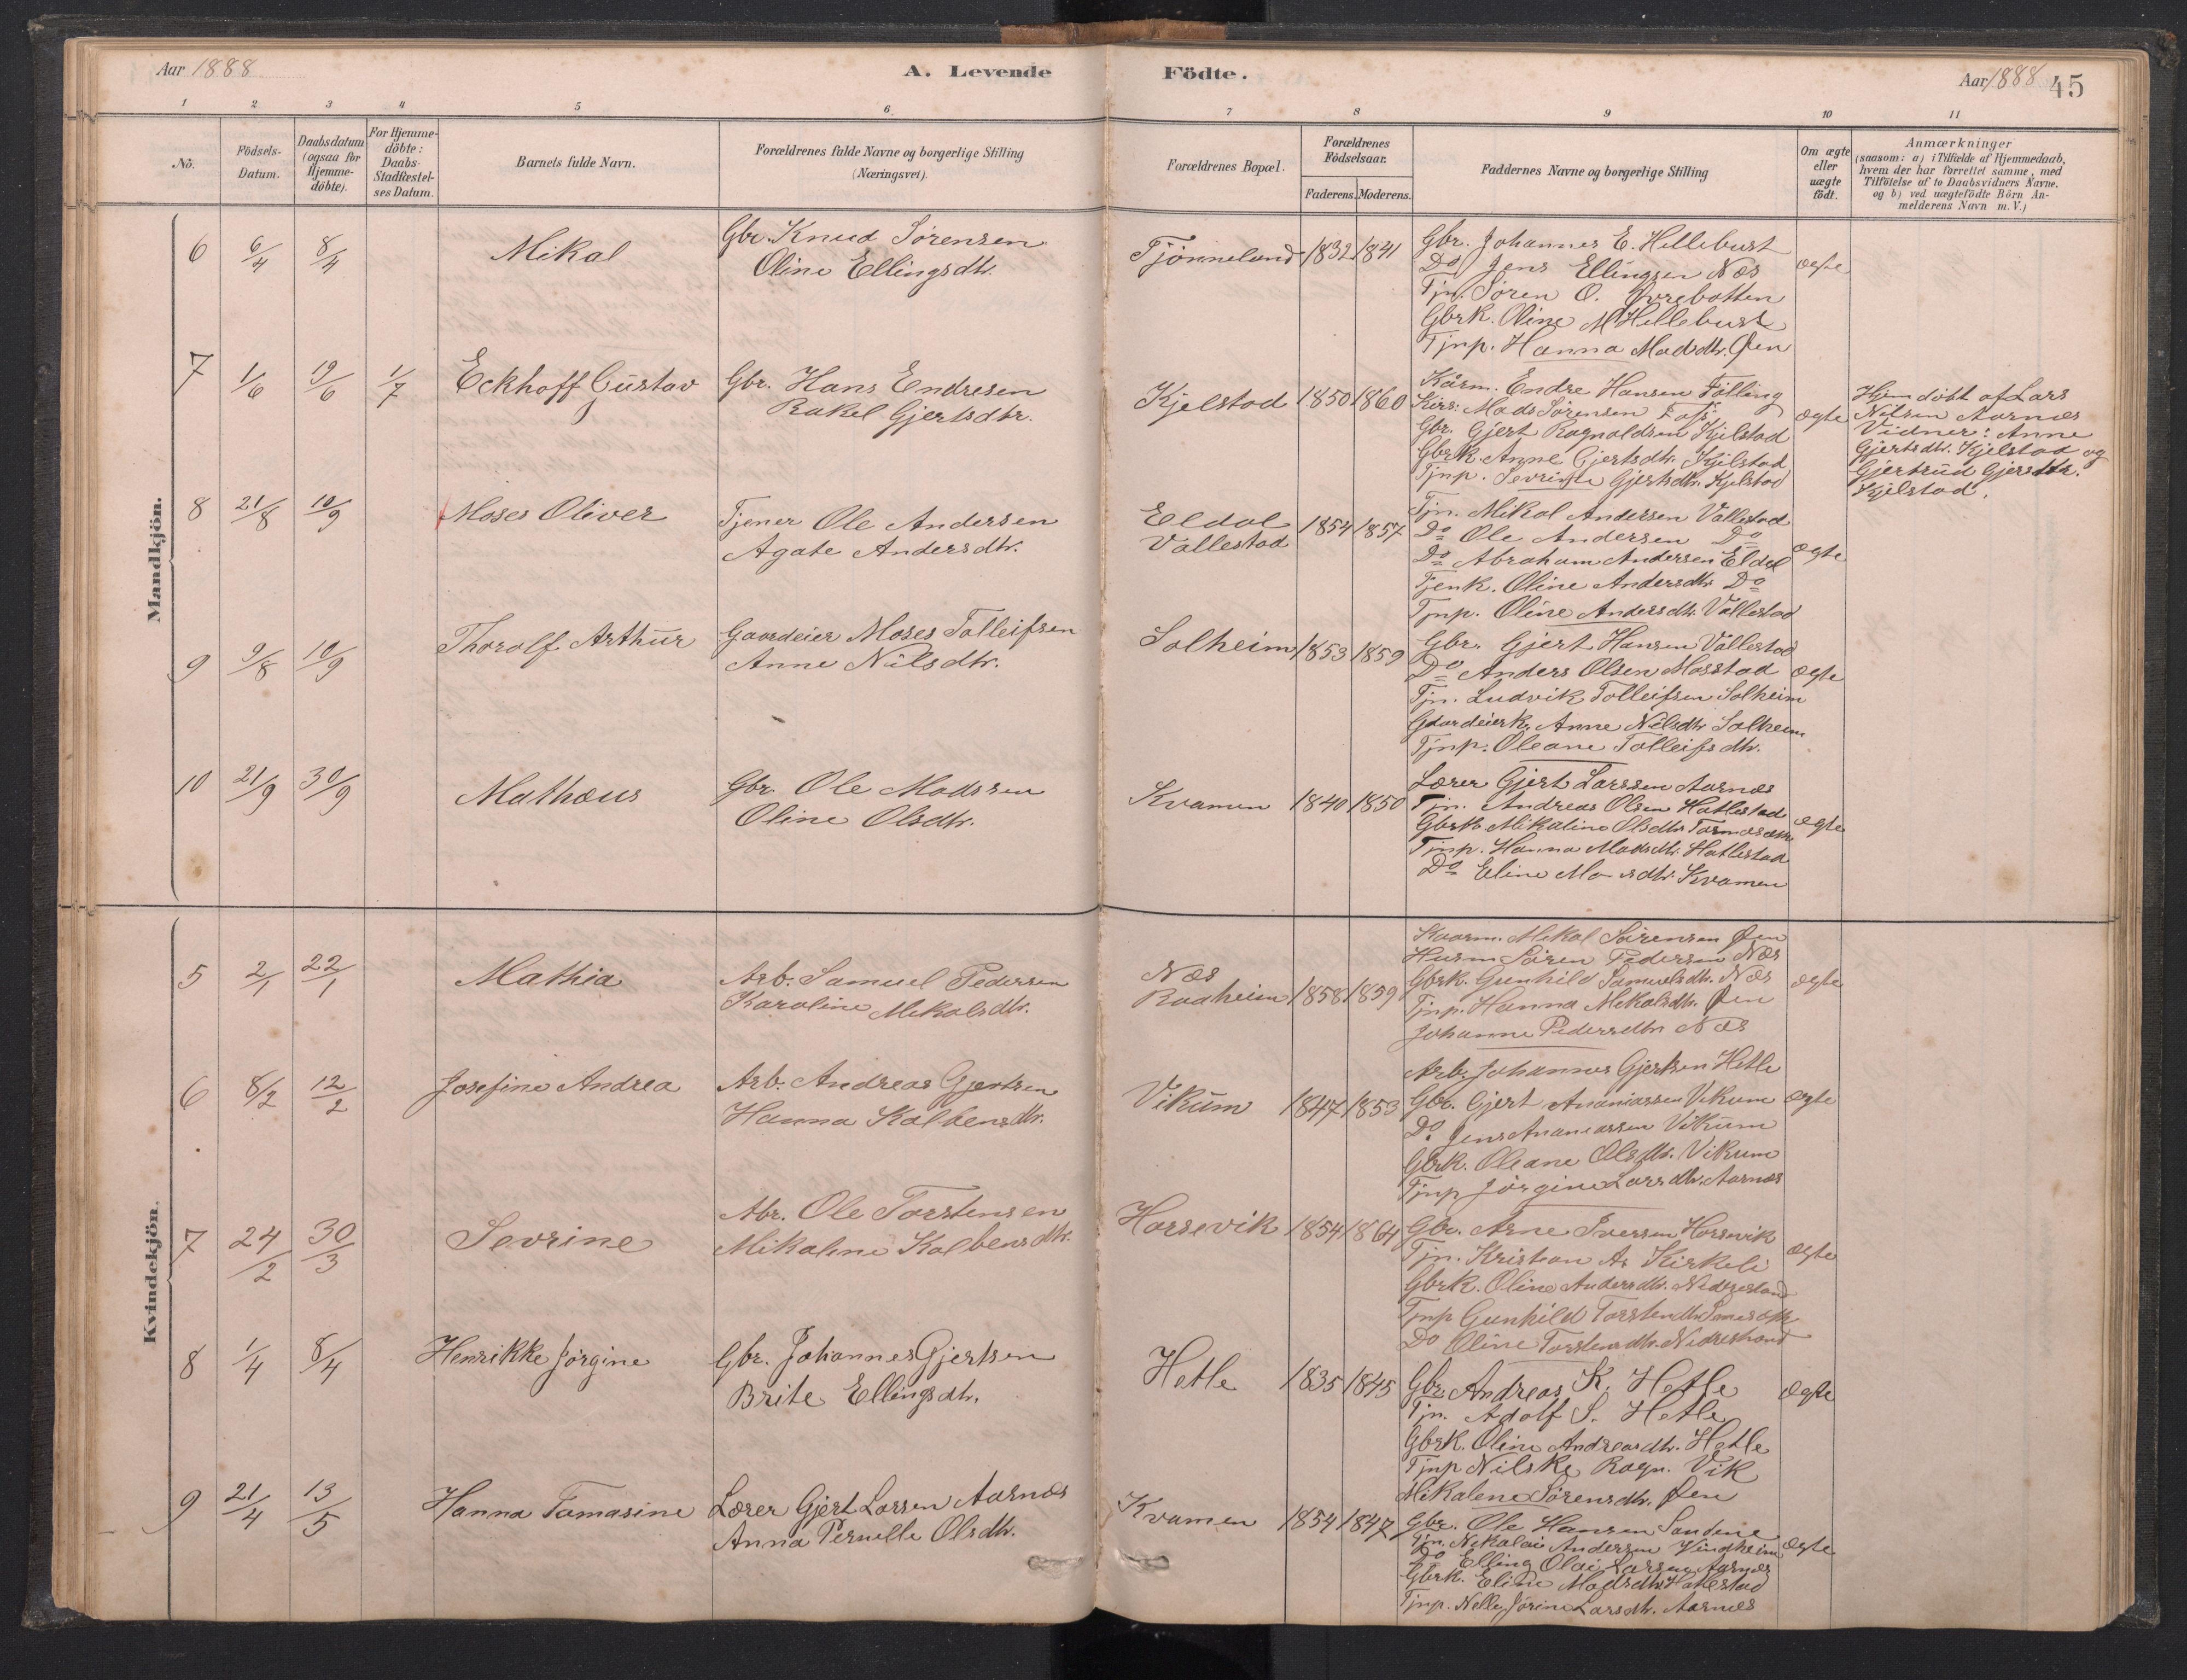 Aar 1888
A. Levende
Födte.
Aar 1888 45
1 2 3 4 5 6 7 8 9 10 11
Nö.
Födsels-
Datum.
Daabsdatum
(ogsaa for
Hjemme-
döbte).
For Hjemme-
döbte:
Daabs-
Stadfæstel-
ses Datum.
Barnets fulde Navn.
Forældrenes fulde Navne og borgerlige Stilling
(Næringsvei).
Forældrenes Bopæl.
Forældrenes
Födselsaar.
Faderens. Moderens.
Faddernes Navne og borgerlige Stilling
Om ægte
eller
uægte
födt.
Anmærkninger
(saasom: a) i Tilfælde af Hjemmedaab,
hvem der har forrettet samme, med
Tilföielse af to Daabsvidners Navne.
og b) ved uægtefödte Börn An-
melderens Navn m. V.)
Mandkjön.
6 6/4 8/4 Mikal
Gbr. Knud Sørensen
Oline Ellingsdtr.
Tjønneland 1832 1841
Gbr. Johannes E. Hellebust
Do Jens Ellingsen Næs
Tjn. Søren O. Øvrebotten
Gbrk. Oline M Hellebust
Tjnp. Hanna Madsdtr. Øen
ægte
7 1/6 19/6 1/7 Eckhoff Gustav
Gbr. Hans Endresen
Rakel Gjertsdtr.
Kjelstad 1850 1860
Kårm. Endre Hansen Følling
Kirs: Mads Sørensen
Gbr. Gjert Ragnaldsen Kjelstad
Gbrk. Anne Gjertsdtr. Kjelstad
Tjnp. Sevrine Gjertsdtr. Kjelstad
ægte
Hjemdöbt af Lars
Nilsen Aarnæs
Vidner: Anne
Gjertsdtr. Kjelstad og
Gjertrud Gjertsdtr.
Kjelstad.
8 21/8 10/9 Moses Oliver
Tjener Ole Andersen
Agate Andersdtr.
Eldal
Vallestad
1854 1857
Tjn. Mikal Andersen Vallestad
Do Ole Andersen Do
Do Abraham Andersen Eldal
Tjenk. Oline Andersdtr Do
Tjnp. Oline Andersdtr. Vallestad
ægte
9 9/8 10/9 Thorolf Arthur
Gaardeier Moses Tolleifsen
Anne Nilsdtr.
Solheim 1853 1859
Gbr. Gjert Hansen Vallestad
Do Anders Olsen Masstad
Tjn. Ludvik Tolleifsen Solheim
Gaardeierk. Anne Nilsdtr Solheim
Tjnp. Oleane Tolleifsdtr.
ægte
10 21/9 30/9 Mathæus
Gbr. Ole Madssen
Oline Olsdtr.
Kvamen 1840 1850
Lærer Gjert Larssen Aarnæs
Tjn. Andreas Olsen Hatlestad
Gbrk. Mikaline Olsdtr
Tjnp. Hanna Madsdtr. Hatlestad
Do Eline Kvamen
ægte
Kvindekjön.
5 2/1 22/1 Mathia
Arb. Samuel Pedersen
Karoline Mikalsdtr.
Næs
Raaheim
1858 1859
Kaarm. Mikal Sørensen Øen
Husm Søren Pedersen Næs
Gbrk. Gunhild Samuelsdtr. Næs
Tjnp. Hanna Mikalsdtr. Øen
Johanne Pedersdtr Næs
ægte
6 8/2 12/2 Josefine Andrea
Arb. Andreas Gjertsen
Hanna Kolbensdtr.
Vikum 1847 1853
Arb. Johannes Gjertsen Hetle
Gbr. Gjert Ananiassen Vikum
Do. Jens Ananiassen Vikum
Gbrk. Oleane Olsdtr. Vikum
Tjnp Jørgine Larsdtr. Aarnæs
ægte
7 24/2 30/3 Sevrine
Abr. Ole Torstensen
Mikaline Kolbensdtr.
Horsevik 1854 1864
Gbr. Arne Iversen Horsevik
Tjn. Kristian A. Kirkeli
Gbrk. Oline Andersdtr. Nedrestand
Tjnp Gunhild Torstendtr
Do Oline Torstensdtr. Nedrestrand
ægte
8 1/4 8/4 Henrikke Jørgine
Gbr. Johannes Gjertsen
Brite Ellingsdtr.
Hetle 1835 1845
Gbr Andreas K. Hetle
Tjn. Adolf S. Hetle
Gbrk. Oline Andreasdtr. Hetle
Tjnp Nilske Ragn. Vik
Mikalene Sørensdtr. Øen
ægte
9 21/4 13/5 Hanna Tomasine
Lærer Gjert Larsen Aarnæs
Anna Pernille Olsdtr.
Kvamen 1854 1847
Gbr. Ole Hansen Sandene
Tjn. Nikolai Andersen Vindheim
Do Elling Olai Larsen Aarnæs
Gbrk. Eline Madsdtr Hatlestad
Tjnp. Nelly Jørine Larsdtr. Aarnæs
ægte